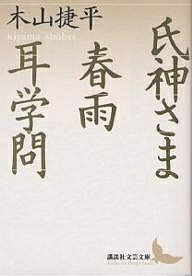 木山捷平
kiyama shōhei
氏神さま
春雨
耳学問
講談社文芸文庫